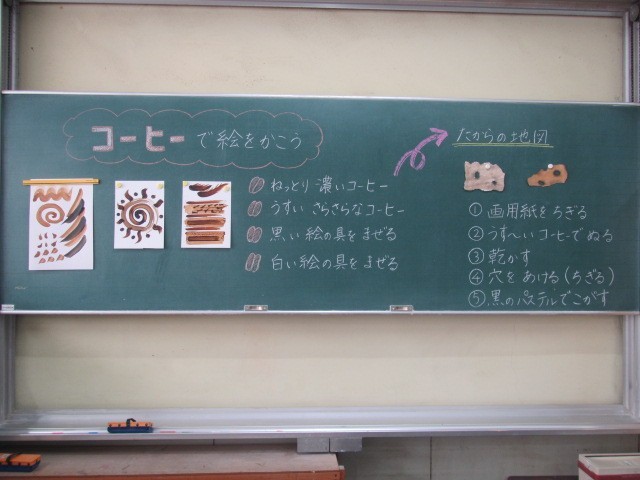 コーヒーで絵をかこう
ねっとり 濃いコーヒー
うすい さらさらなコーヒー
黒い絵の具をまぜる
白い絵の具をまぜる
たからの地図
① 画用紙をちぎる
② うす〜いコーヒーでぬる
③ 乾かす
④ 穴をあける(ちぎる)
⑤ 黒のパステルでこがす